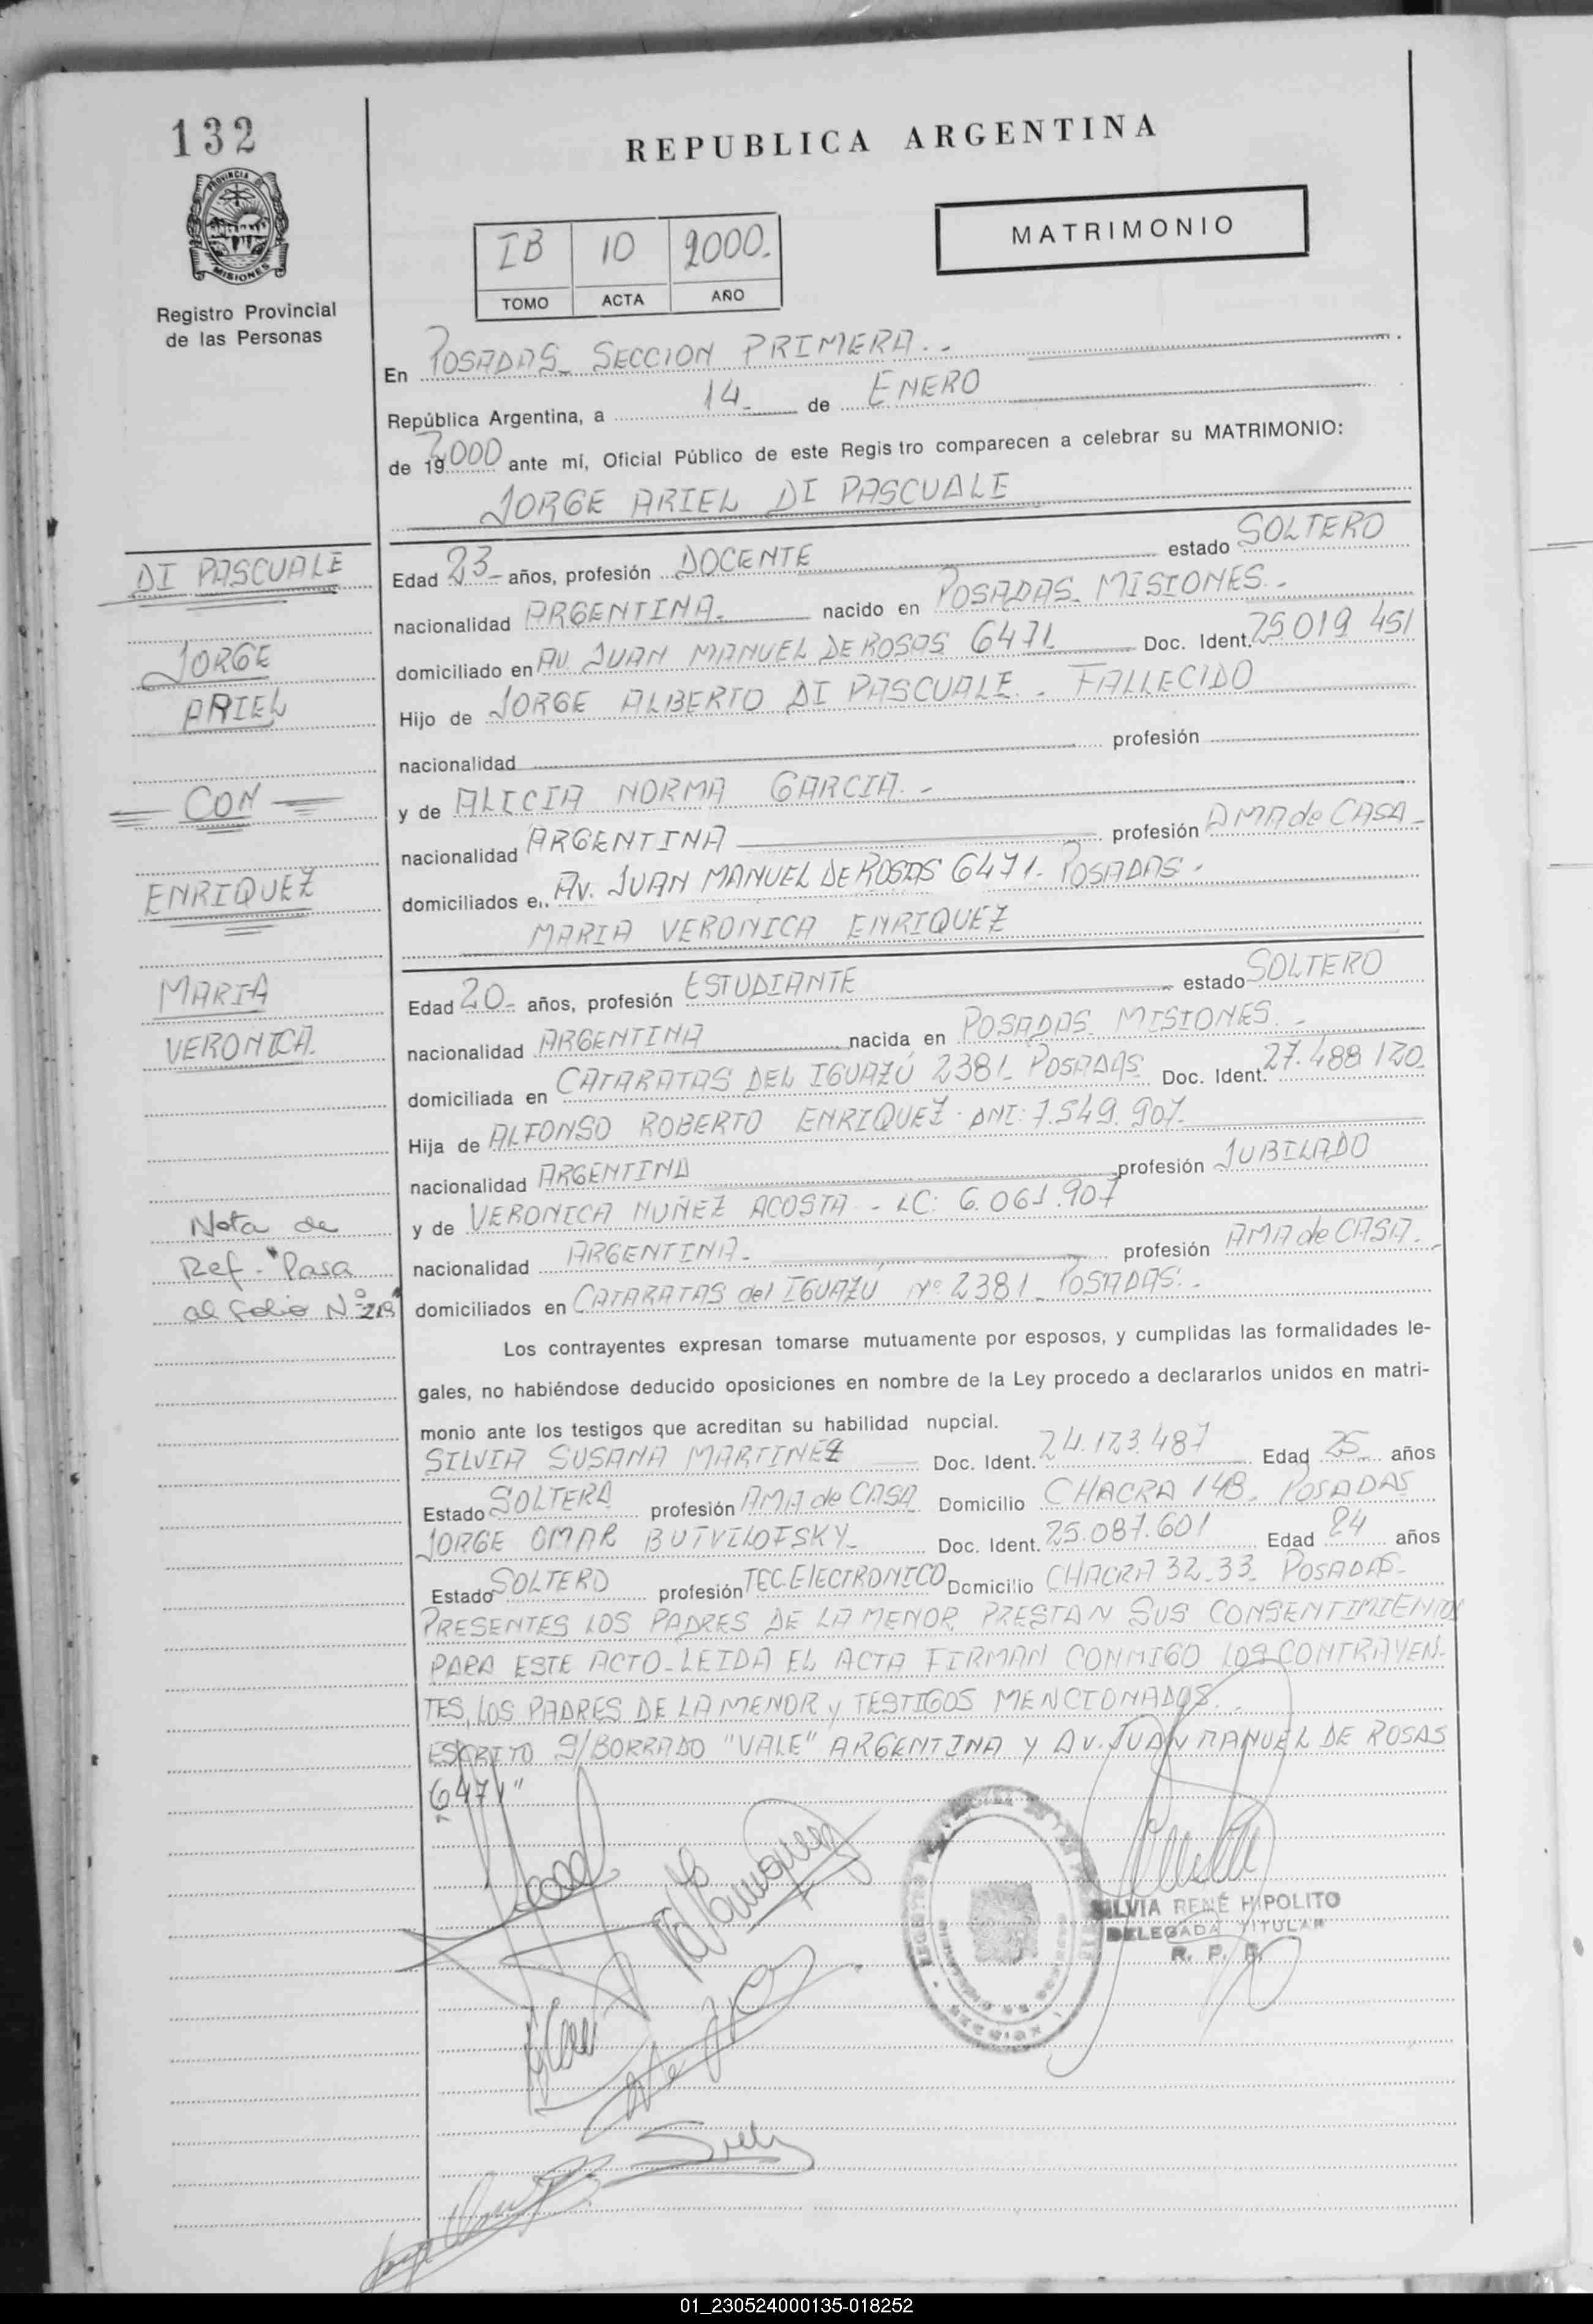 132
REPUBLICA ARGENTINA
PROVINCIA DE MISIONES
Registro Provincial
de las Personas
IB 10 2000.
TOMO ACTA AÑO
MATRIMONIO
En POSADAS_ SECCION PRIMERA.-
República Argentina, a 14_ de ENERO
de 19 2000 ante mí, Oficial Público de este Regis tro comparecen a celebrar su MATRIMONIO:
JORGE ARIEL DI PASCUALE
DI PASCUALE
JORGE
ARIEL
CON
ENRIQUEZ
MARIA
VERONICA.
Nota de
Ref. "Pasa
al folio Nº 219"
Edad 23- años, profesión DOCENTE estado SOLTERO
nacionalidad ARGENTINA. nacido en POSADAS_ MISIONES.-
domiciliado en AV. JUAN MANUEL DE ROSAS 6471 Doc. Ident. 25 019 451
Hijo de JORGE ALBERTO DI PASCUALE - FALLECIDO
nacionalidad profesión
y de ALICIA NORMA GARCIA.-
nacionalidad ARGENTINA profesión AMA de CASA_
domiciliados e.. AV. JUAN MANUEL DE ROSAS 6471- POSADAS.
MARIA VERONICA ENRIQUEZ
Edad 20- años, profesión ESTUDIANTE estado SOLTERO
nacionalidad ARGENTINA nacida en POSADAS_ MISIONES.-
domiciliada en CATARATAS DEL IGUAZÚ 2381_ POSADAS Doc. Ident. 27.488 120
Hija de ALFONSO ROBERTO ENRIQUEZ - DNI: 7.549.907-
nacionalidad ARGENTINA profesión JUBILADO
y de VERONICA NUÑEZ ACOSTA - LC: 6.061.907
nacionalidad ARGENTINA_ profesión AMA de CASA.-
domiciliados en CATARATAS del IGUAZÚ Nº 2381_ POSADAS.-
Los contrayentes expresan tomarse mutuamente por esposos, y cumplidas las formalidades le-
gales, no habiéndose deducido oposiciones en nombre de la Ley procedo a declararlos unidos en matri-
monio ante los testigos que acreditan su habilidad nupcial.
SILVIA SUSANA MARTINEZ Doc. Ident. 24.123.487 Edad 25 años
Estado SOLTERA profesión AMA de CASA Domicilio CHACRA 148_ POSADAS
JORGE OMAR BUTVILOFSKY_ Doc. Ident. 25.087.601 Edad 24 años
Estado SOLTERO profesión TEC. ElECTRONICO Domicilio CHACRA 32_33_ POSADAS-
PRESENTES LOS PADRES DE LA MENOR PRESTAN SUS CONSENTIMIENTOS
PARA ESTE ACTO_LEIDA EL ACTA FIRMAN CONMIGO LOS CONTRAYEN-
TES, LOS PADRES DE LA MENOR y TESTIGOS MENCIONADOS.-
ESCRITO S/BORRADO "VALE" ARGENTINA Y AV. JUAN MANUEL DE ROSAS
6471"
SILVIA RENÉ HIPOLITO
DELEGADA TITULAR
R. P. P.
01_230524000135-018252